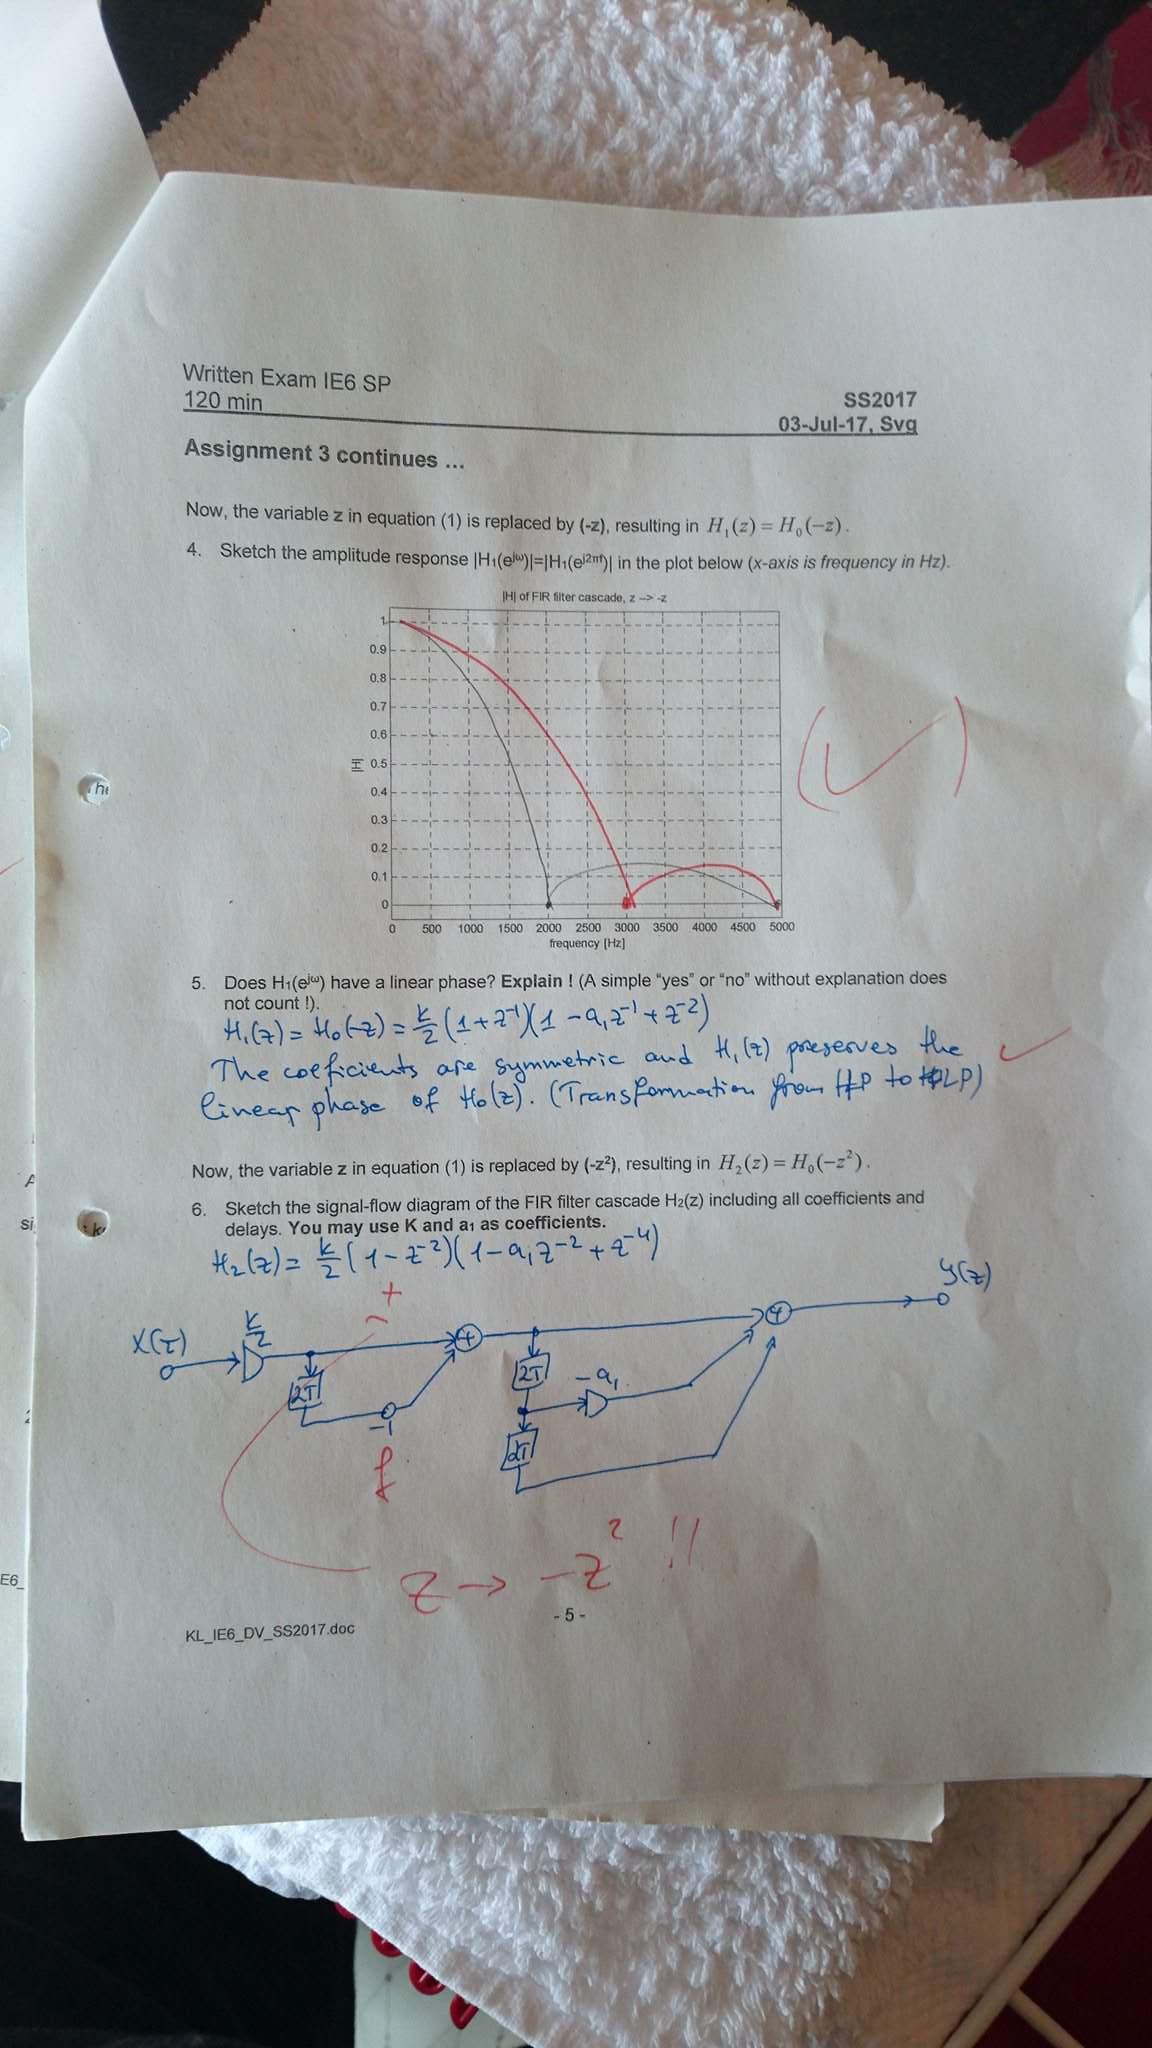 Written Exam IE6 SP
120 min
SS2017
03-Jul-17, Svg
Assignment 3 continues ...
Now, the variable z in equation (1) is replaced by (-z), resulting in H₁(z) = H₀(-z).
4. Sketch the amplitude response |H₁(e^jω)|=|H₁(e^j2πf)| in the plot below (x-axis is frequency in Hz).
|H| of FIR filter cascade, z --> -z
1
0.9
0.8
0.7
0.6
|H| 0.5
0.4
0.3
0.2
0.1
0
0 500 1000 1500 2000 2500 3000 3500 4000 4500 5000
frequency [Hz]
(✓)
5. Does H₁(e^jω) have a linear phase? Explain ! (A simple "yes" or "no" without explanation does
not count !).
H₁(z) = H₀(-z) = k/2 (1+z⁻¹)(1-a₁z⁻¹+z⁻²)
The coefficients are symmetric and H₁(z) preserves the ✓
linear phase of H₀(z). (Transformation from HP to LP)
Now, the variable z in equation (1) is replaced by (-z²), resulting in H₂(z) = H₀(-z²).
6. Sketch the signal-flow diagram of the FIR filter cascade H₂(z) including all coefficients and
delays. You may use K and a₁ as coefficients.
H₂(z) = k/2 (1-z⁻²)(1-a₁z⁻²+z⁻⁴)
+
X(z) k/2 + + Y(z)
2T -1 2T -a₁
2T
f
z → -z² !!
- 5 -
KL_IE6_DV_SS2017.doc
E6_